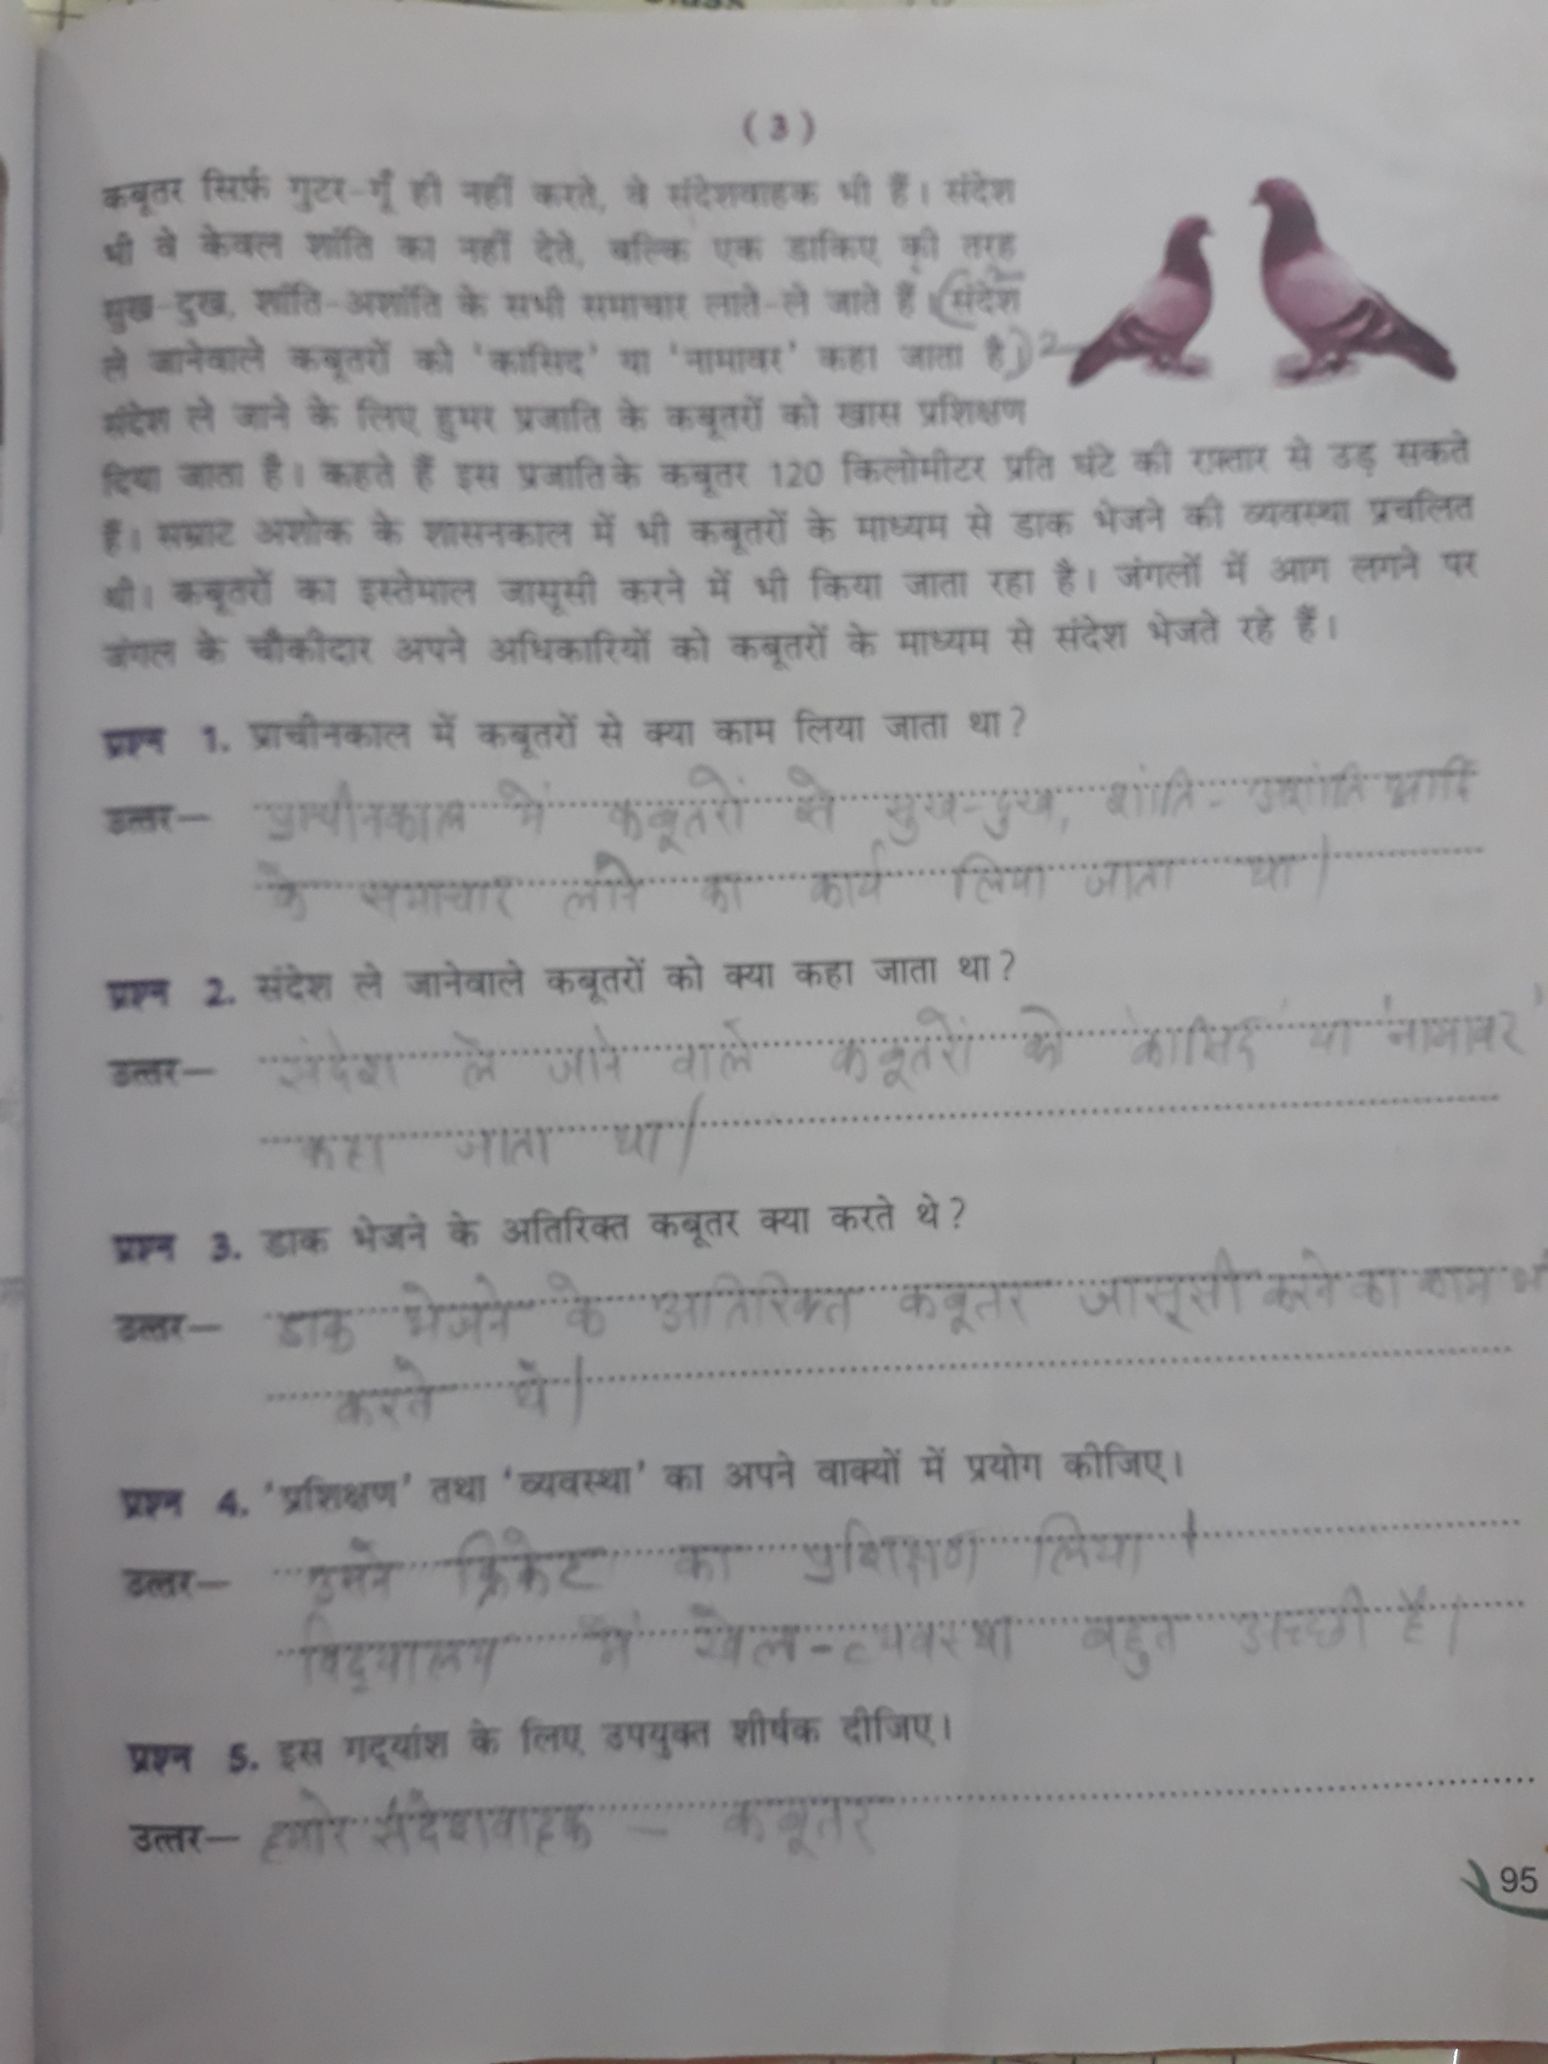 ( 3 )
कबूतर सिर्फ़ गुटर-गूँ ही नहीं करते, वे संदेशवाहक भी हैं। संदेश
भी वे केवल शांति का नहीं देते, बल्कि एक डाकिए की तरह
सुख-दुख, शांति-अशांति के सभी समाचार लाते-ले जाते हैं। (संदेश
ले जानेवाले कबूतरों को 'कासिद' या 'नामावर' कहा जाता है।) 2
संदेश ले जाने के लिए हुमर प्रजाति के कबूतरों को खास प्रशिक्षण
दिया जाता है। कहते हैं इस प्रजाति के कबूतर 120 किलोमीटर प्रति घंटे की रफ़्तार से उड़ सकते
हैं। सम्राट अशोक के शासनकाल में भी कबूतरों के माध्यम से डाक भेजने की व्यवस्था प्रचलित
थी। कबूतरों का इस्तेमाल जासूसी करने में भी किया जाता रहा है। जंगलों में आग लगने पर
जंगल के चौकीदार अपने अधिकारियों को कबूतरों के माध्यम से संदेश भेजते रहे हैं।
प्रश्न 1. प्राचीनकाल में कबूतरों से क्या काम लिया जाता था?
उत्तर— प्राचीनकाल में कबूतरों से सुख-दुख, शांति-अशांति आदि
के समाचार लाने का कार्य लिया जाता था।
प्रश्न 2. संदेश ले जानेवाले कबूतरों को क्या कहा जाता था?
उत्तर— संदेश ले जाने वाले कबूतरों को 'कासिद' या 'नामावर'
कहा जाता था।
प्रश्न 3. डाक भेजने के अतिरिक्त कबूतर क्या करते थे?
उत्तर— डाक भेजने के अतिरिक्त कबूतर जासूसी करने का काम भी
करते थे।
प्रश्न 4. 'प्रशिक्षण' तथा 'व्यवस्था' का अपने वाक्यों में प्रयोग कीजिए।
उत्तर— उसने क्रिकेट का प्रशिक्षण लिया।
विद्यालय में खेल-व्यवस्था बहुत अच्छी है।
प्रश्न 5. इस गद्यांश के लिए उपयुक्त शीर्षक दीजिए।
उत्तर— हमारे संदेशवाहक – कबूतर
95